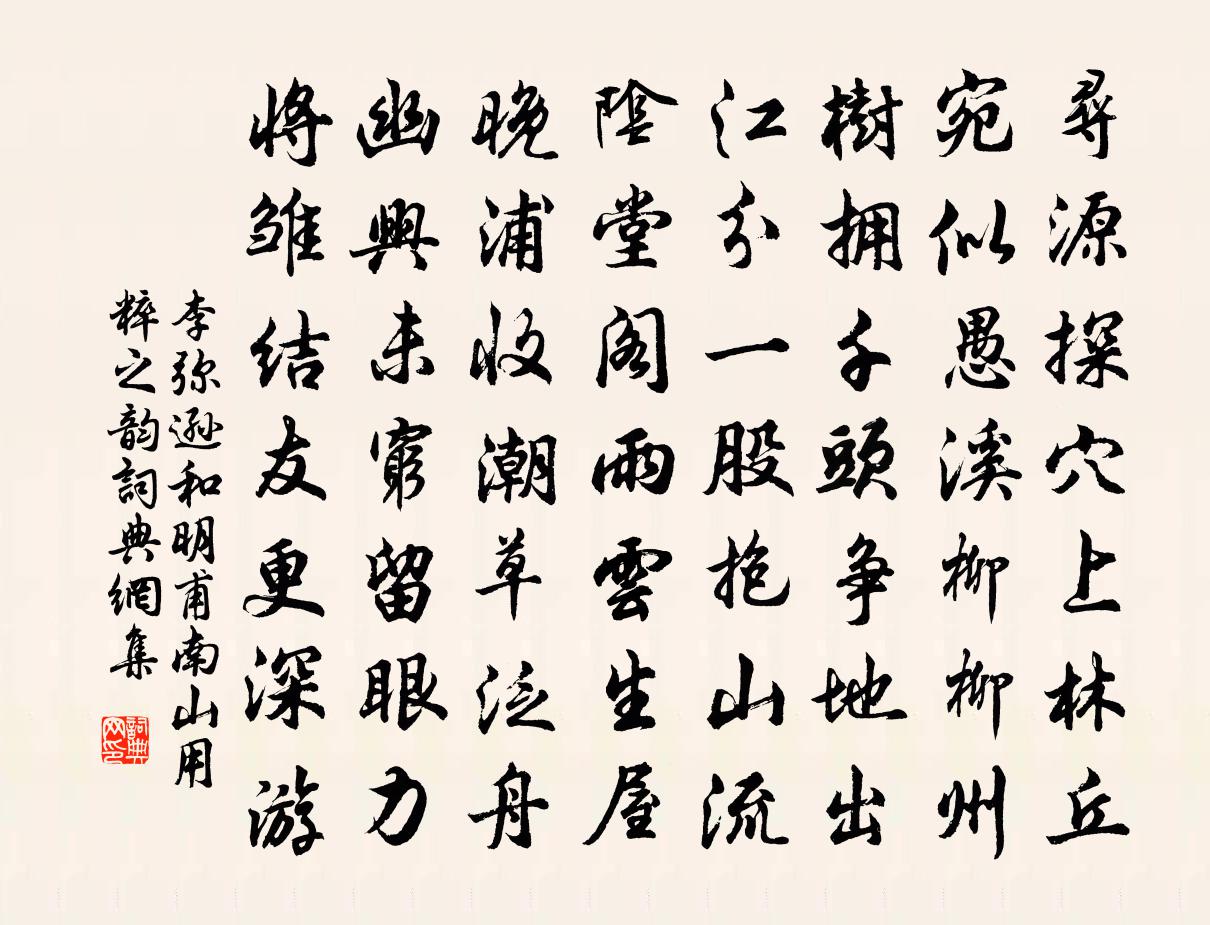 尋源探穴上林丘
宛似愚溪柳柳州
樹拥千頭争地出
江分一股抱山流
陰堂阁雨雲生屋
晚浦收潮草泛舟
幽興未窮留眼力
将雏结友更深游
李弥逊和明甫南山用
粹之韵詞典網集
詞典网印